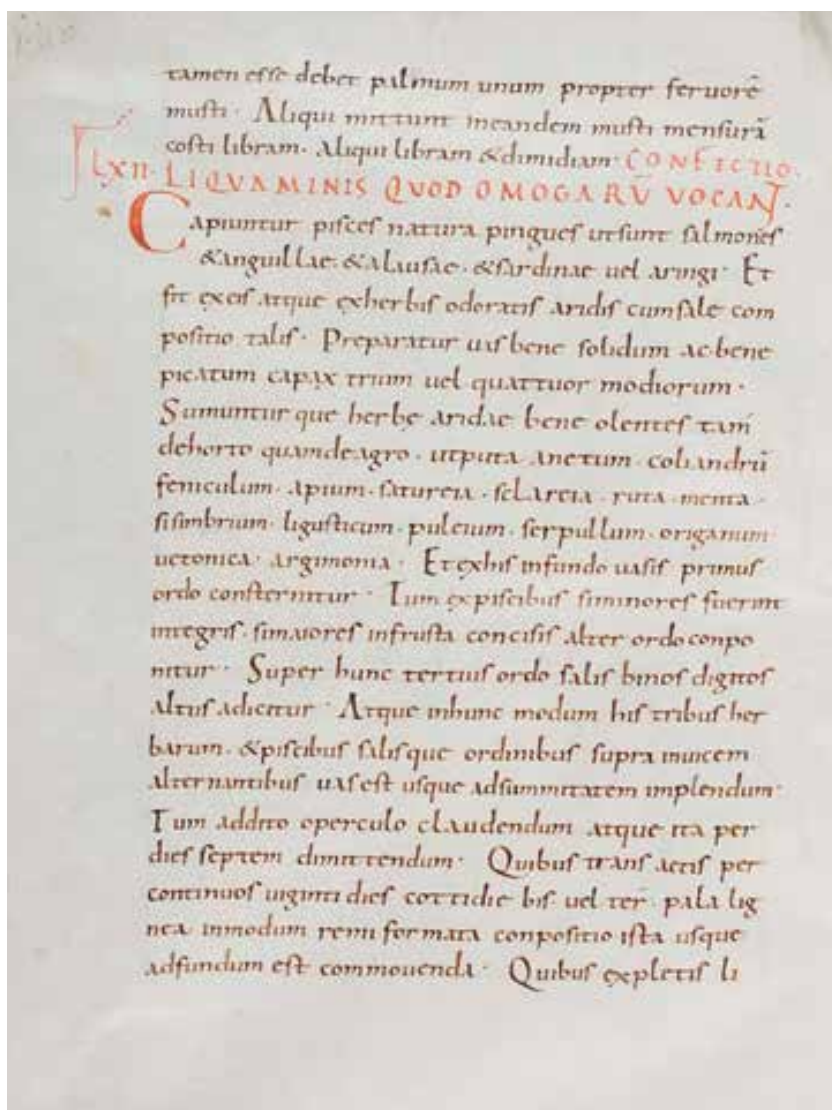 tamen esse debet palmum unum propter feruorē
musti · Aliqui mittunt ineandem musti mensurā
costi libram · aliqui libram &dimidiam · CONFICTIO ·
LXII · LIQVAMINIS QUOD OMOGARŪ VOCANT ·
Capiuntur pisces natura pingues utsunt salmones
&anguillae · &alausae · &sardinae uel aringi · Et
fit exeis atque exherbis odoratis aridis cumsale com
positio talis · Preparatur uas bene solidum ac bene
picatum capax trium uel quattuor modiorum ·
Sumuntur que herbe aridae bene olentes tam
dehorto quamdeagro · utputa anetum · coliandrū
feniculum · apium · satureia · sclareia · ruta · menta ·
sisimbrium · ligusticum · puleium · serpullum · origanum ·
uetonica · argimonia · Et exhis infundo uasis primus
ordo consternitur · Tum expiscibus siminores fuerint
integris · simaiores infrusta concisis alter ordo conpo
nitur · Super hunc tertius ordo salis binos digitos
altus adicitur · Atque inhunc modum his tribus her
barum · &piscibus salisque ordinibus supra inuicem
alternantibus uas est usque adsummitatem implendum ·
Tum addito operculo claudendum atque ita per
dies septem dimittendum · Quibus transactis per
continuos uiginti dies cottidie bis uel ter · pala lig
nea inmodum remi formata conpositio ista usque
adfundum est commouenda · Quibus expletis li